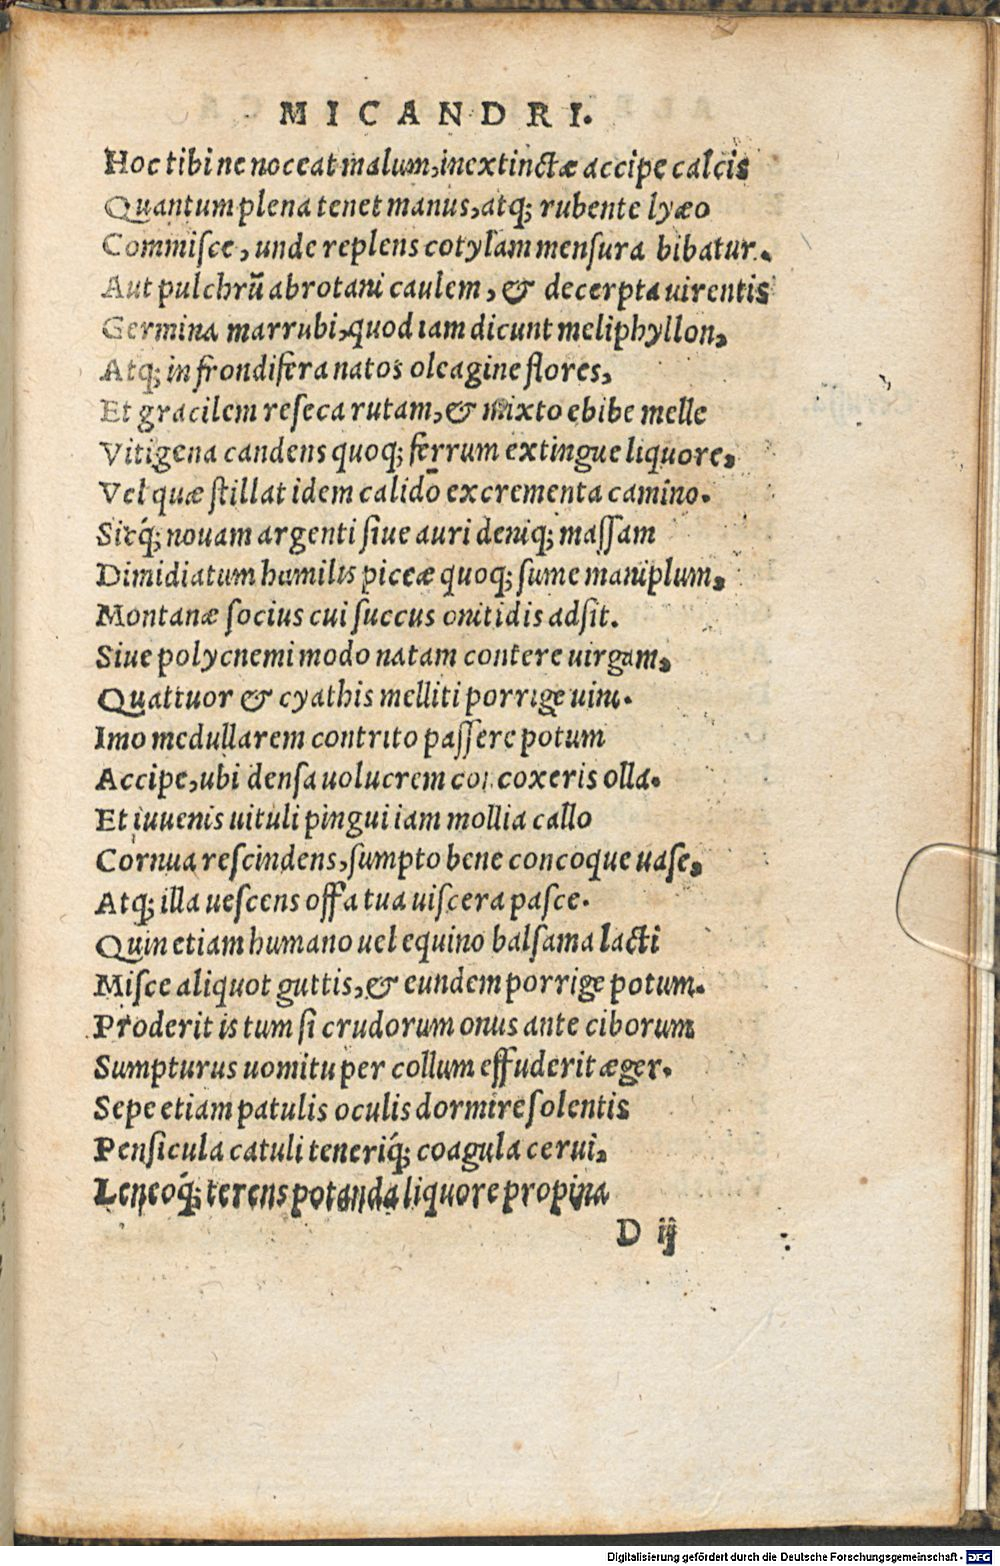 MICANDRI.
Hoc tibi ne noceat malum, inextinctæ accipe calcis
Quantum plena tenet manus, atq; rubente lyæo
Commisce, unde replens cotylam mensura bibatur.
Aut pulchrũ abrotani caulem, & decerpta uirentis
Germina marrubi, quod iam dicunt meliphyllon,
Atq; in frondifera natos oleagine flores,
Et gracilem reseca rutam, & mixto ebibe melle
Vitigena candens quoq; ferrum extingue liquore,
Vel quæ stillat idem calido excrementa camino.
Sitq́; nouam argenti siue auri deniq; massam
Dimidiatum humilis piceæ quoq; sume maniplum,
Montanæ socius cui succus onitidis adsit.
Siue polycnemi modo natam contere uirgam,
Quattuor & cyathis melliti porrige uini.
Imo medullarem contrito passere potum
Accipe, ubi densa uolucrem coxeris olla.
Et iuuenis uituli pingui iam mollia callo
Cornua rescindens, sumpto bene concoque uase,
Atq; illa uescens offa tua uiscera pasce.
Quin etiam humano uel equino balsama lacti
Misce aliquot guttis, & eundem porrige potum.
Proderit is tum si crudorum onus ante ciborum
Sumpturus uomitu per collum effuderit æger.
Sepe etiam patulis oculis dormire solentis
Pensicula catuli teneriq́; coagula cerui,
Leneoq́; terens potanda liquore propina
D ij
Digitalisierung gefördert durch die Deutsche Forschungsgemeinschaft - DFG